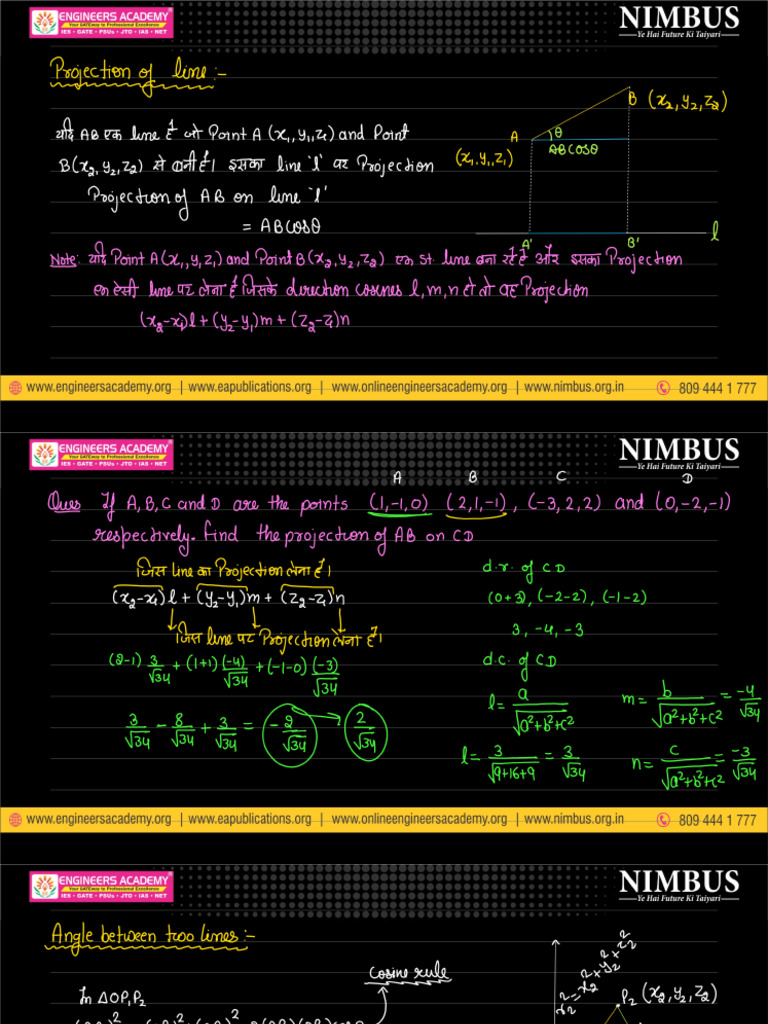 ENGINEERS ACADEMY
Your GATEway to Professional Excellence
IES • GATE • PSUs • JTO • IAS • NET
NIMBUS
Ye Hai Future Ki Taiyari
Projection of line:-
यदि AB एक line है जो Point A (x₁,y₁,z₁) and Point
B(x₂,y₂,z₂) से बनी है। इसका line 'l' पर Projection
Projection of AB on line 'l'
= ABcosθ
B (x₂,y₂,z₂)
A
θ
ABcosθ
(x₁,y₁,z₁)
A' B' l
Note: यदि Point A(x₁,y,z₁) and Point B(x₂,y₂,z₂) एक st. line बना रहे है और इसका Projection
एक ऐसी line पर लेना है जिसके direction cosines l,m,n हो तो वह Projection
(x₂-x₁)l+(y₂-y₁)m+(z₂-z₁)n
www.engineersacademy.org | www.eapublications.org | www.onlineengineersacademy.org | www.nimbus.org.in 809 444 1 777
ENGINEERS ACADEMY
Your GATEway to Professional Excellence
IES • GATE • PSUs • JTO • IAS • NET
NIMBUS
Ye Hai Future Ki Taiyari
A B C D
Ques If A,B,C and D are the points (1,-1,0) (2,1,-1), (-3,2,2) and (0,-2,-1)
respectively. Find the projection of AB on CD
जिस line का Projection लेना है।
(x₂-x₁)l+(y₂-y₁)m+(z₂-z₁)n
जिस line पर Projection लेना है।
(2-1) 3/√34 + (1+1) (-4)/√34 + (-1-0) (-3)/√34
3/√34 - 8/√34 + 3/√34 = -2/√34 2/√34
d.r. of CD
(0+3), (-2-2), (-1-2)
3, -4, -3
d.c. of CD
l = a/√a²+b²+c² m = b/√a²+b²+c² = -4/√34
l = 3/√9+16+9 = 3/√34 n = c/√a²+b²+c² = -3/√34
www.engineersacademy.org | www.eapublications.org | www.onlineengineersacademy.org | www.nimbus.org.in 809 444 1 777
ENGINEERS ACADEMY
Your GATEway to Professional Excellence
IES • GATE • PSUs • JTO • IAS • NET
NIMBUS
Ye Hai Future Ki Taiyari
Angle between two lines:-
Cosine rule
In ΔOP₁P₂
r₂²=x₂²+y₂²+z₂²
P₂ (x₂,y₂,z₂)